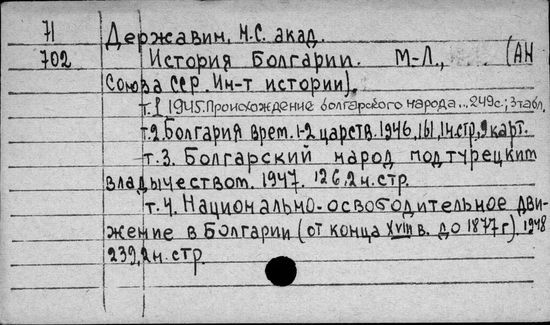 71 Державин, Н.С. акад.
702 История Болгарии. М-Л., (АН
Союза ССР. Ин-т истории).
т.1 1945. Происхождение болгарского народа... 249с.; 3 табл.
т.2. Болгария врем. 1-2 царств. 1946, 161, 1н.стр, 9 карт.
т.3. Болгарский народ под турецким
владычеством. 1947. 126, 2 н. стр.
т.4. Национально-освободительное дви-
жение в Болгарии (от конца XVIII в. до 1877 г). 1948
239, 2 н. стр.